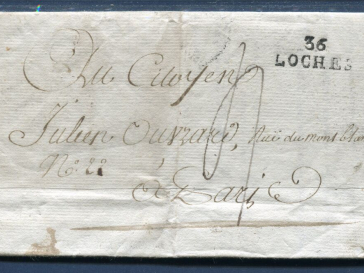 36
LOCHES
Au Citoyen
Julien Ouvrard, Rue du mont blan
No. 22
à Paris